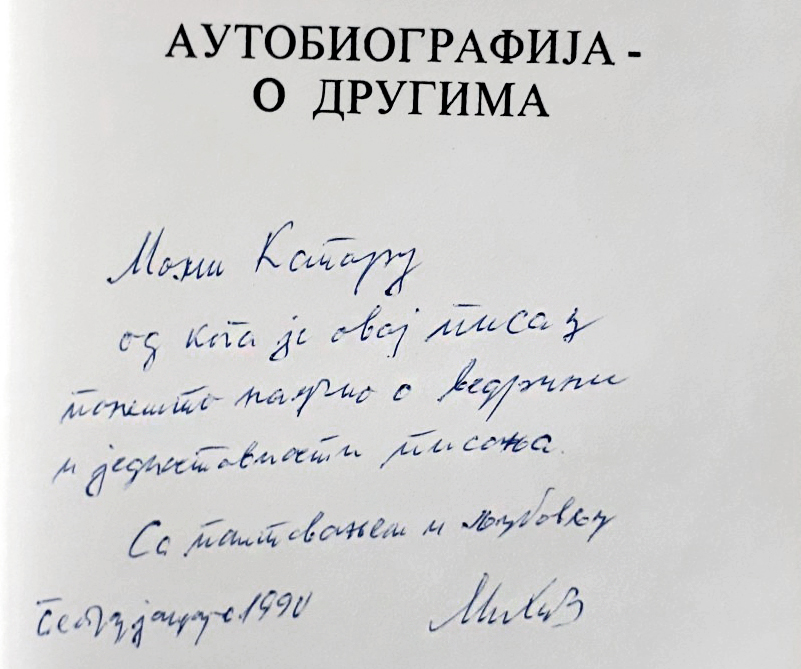 АУТОБИОГРАФИЈА -
О ДРУГИМА
Моми Капору
од кога је овај писац
понешто научио о ведрини
и једноставности писања.
Са поштовањем и љубављу
1990 Михиз